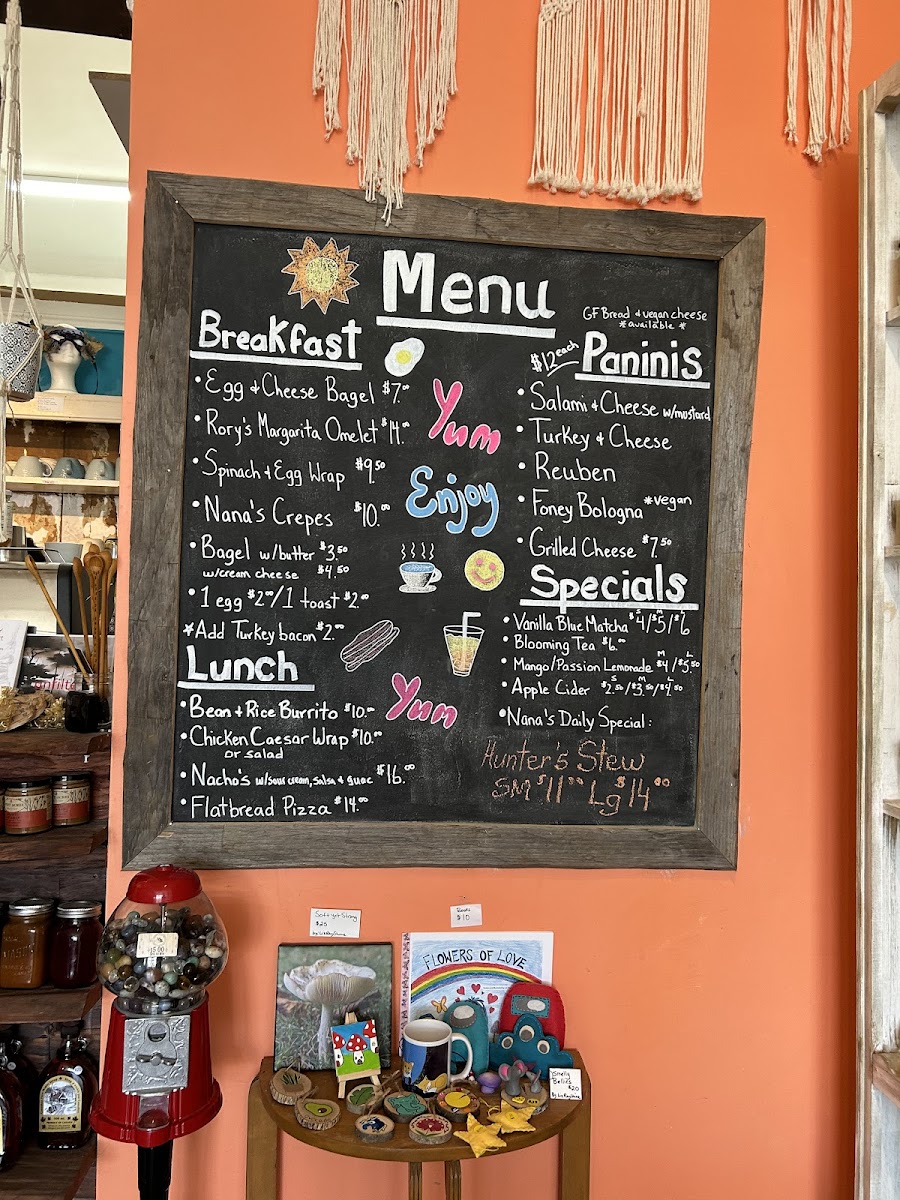 Menu
GF Bread & vegan cheese
*available*
Breakfast
• Egg & Cheese Bagel $7.⁰⁰
• Rory's Margarita Omelet $14.⁰⁰
• Spinach & Egg Wrap $9.50
• Nana's Crepes $10.⁰⁰
• Bagel w/butter $3.50
w/cream cheese $4.50
• 1 egg $2.⁰⁰/1 toast $2.⁰⁰
*Add Turkey bacon $2.⁰⁰
Lunch
• Bean & Rice Burrito $10.⁰⁰
• Chicken Caesar Wrap $10.⁰⁰
or salad
• Nacho's w/sour cream, salsa & guac $16.⁰⁰
• Flatbread Pizza $14.⁰⁰
Yum
Enjoy
Yum
$12 each
Paninis
• Salami & Cheese w/mustard
• Turkey & Cheese
• Reuben
• Foney Bologna *vegan
• Grilled Cheese $7.50
Specials
• Vanilla Blue Matcha S $4/M $5/L $6
• Blooming Tea $6.⁰⁰
• Mango/Passion Lemonade M $4/L $5.50
• Apple Cider S $2.50/M $3.50/L $4.50
• Nana's Daily Special:
Hunter's Stew
SM $11⁰⁰ Lg $14⁰⁰
$25
$10
FLOWERS OF LOVE
Bellies
$20